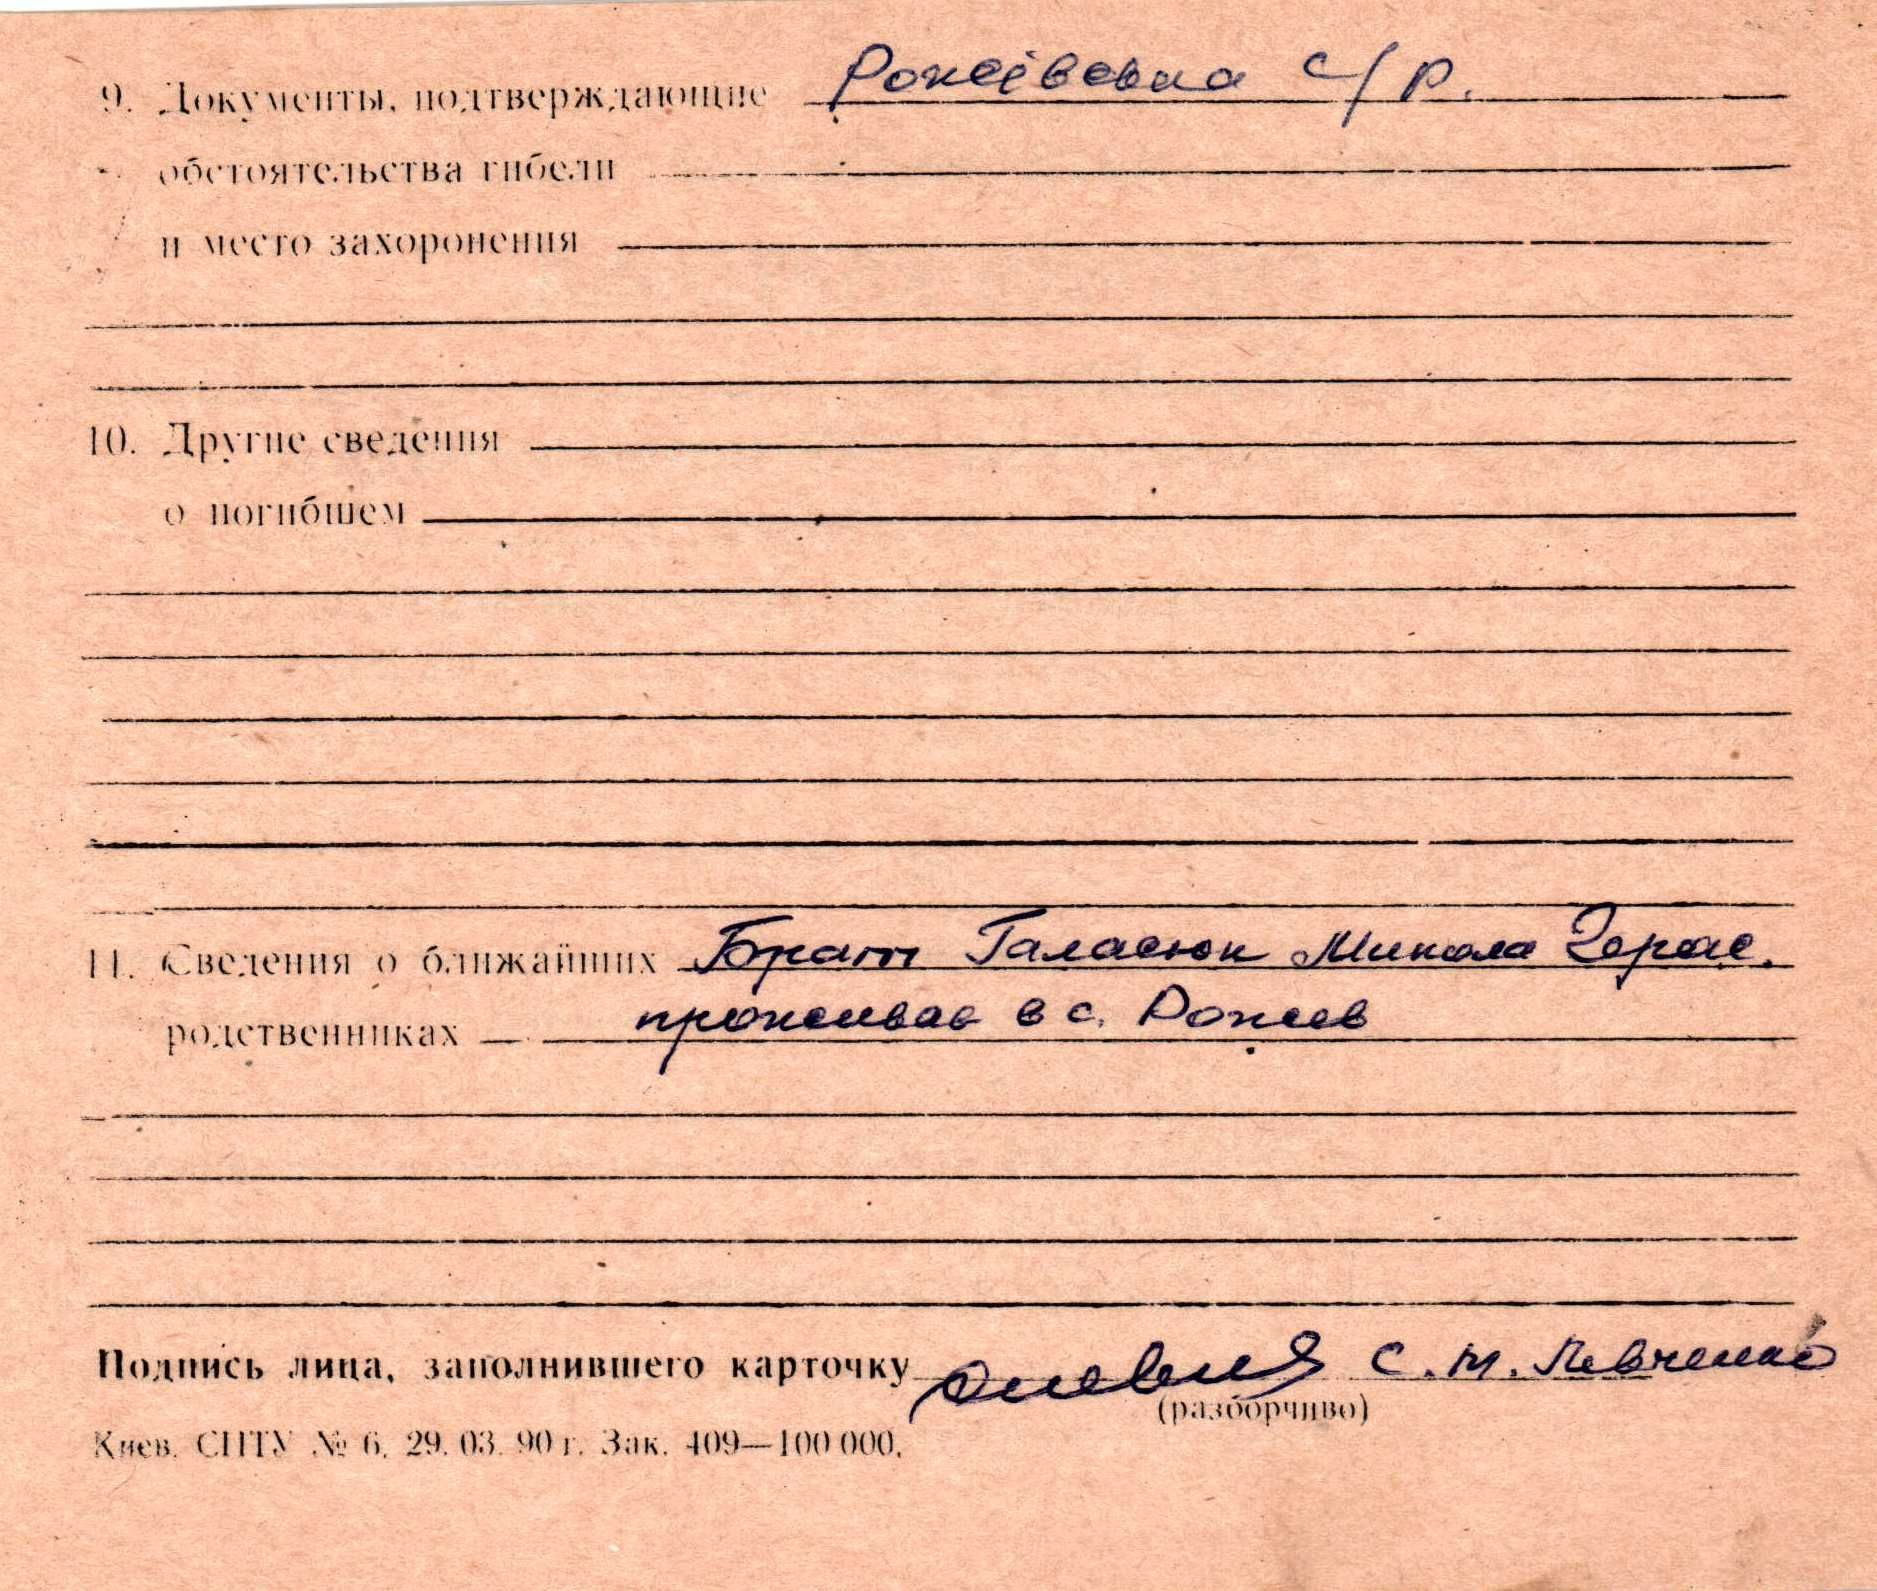 9. Документы, подтверждающие Рожівська с/р.
обстоятельства гибели
и место захоронения
10. Другие сведения
о погибшем
11. Сведения о ближайших Брат Галасюк Микола Герас.
родственниках проживає в с. Рожев
Подпись лица, заполнившего карточку С. М. Левченко
(разборчиво)
Киев. СПТУ № 6. 29. 03. 90 г. Зак. 409—100 000.